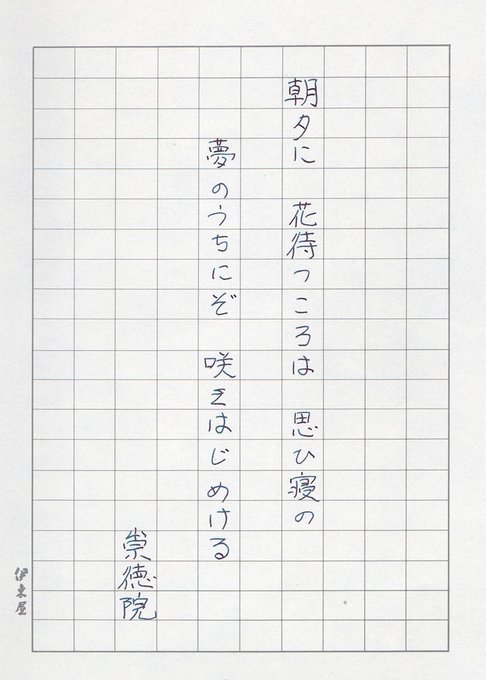 朝夕に 花待つころは 思ひ寝の
夢のうちにぞ 咲きはじめける
崇徳院
伊東屋